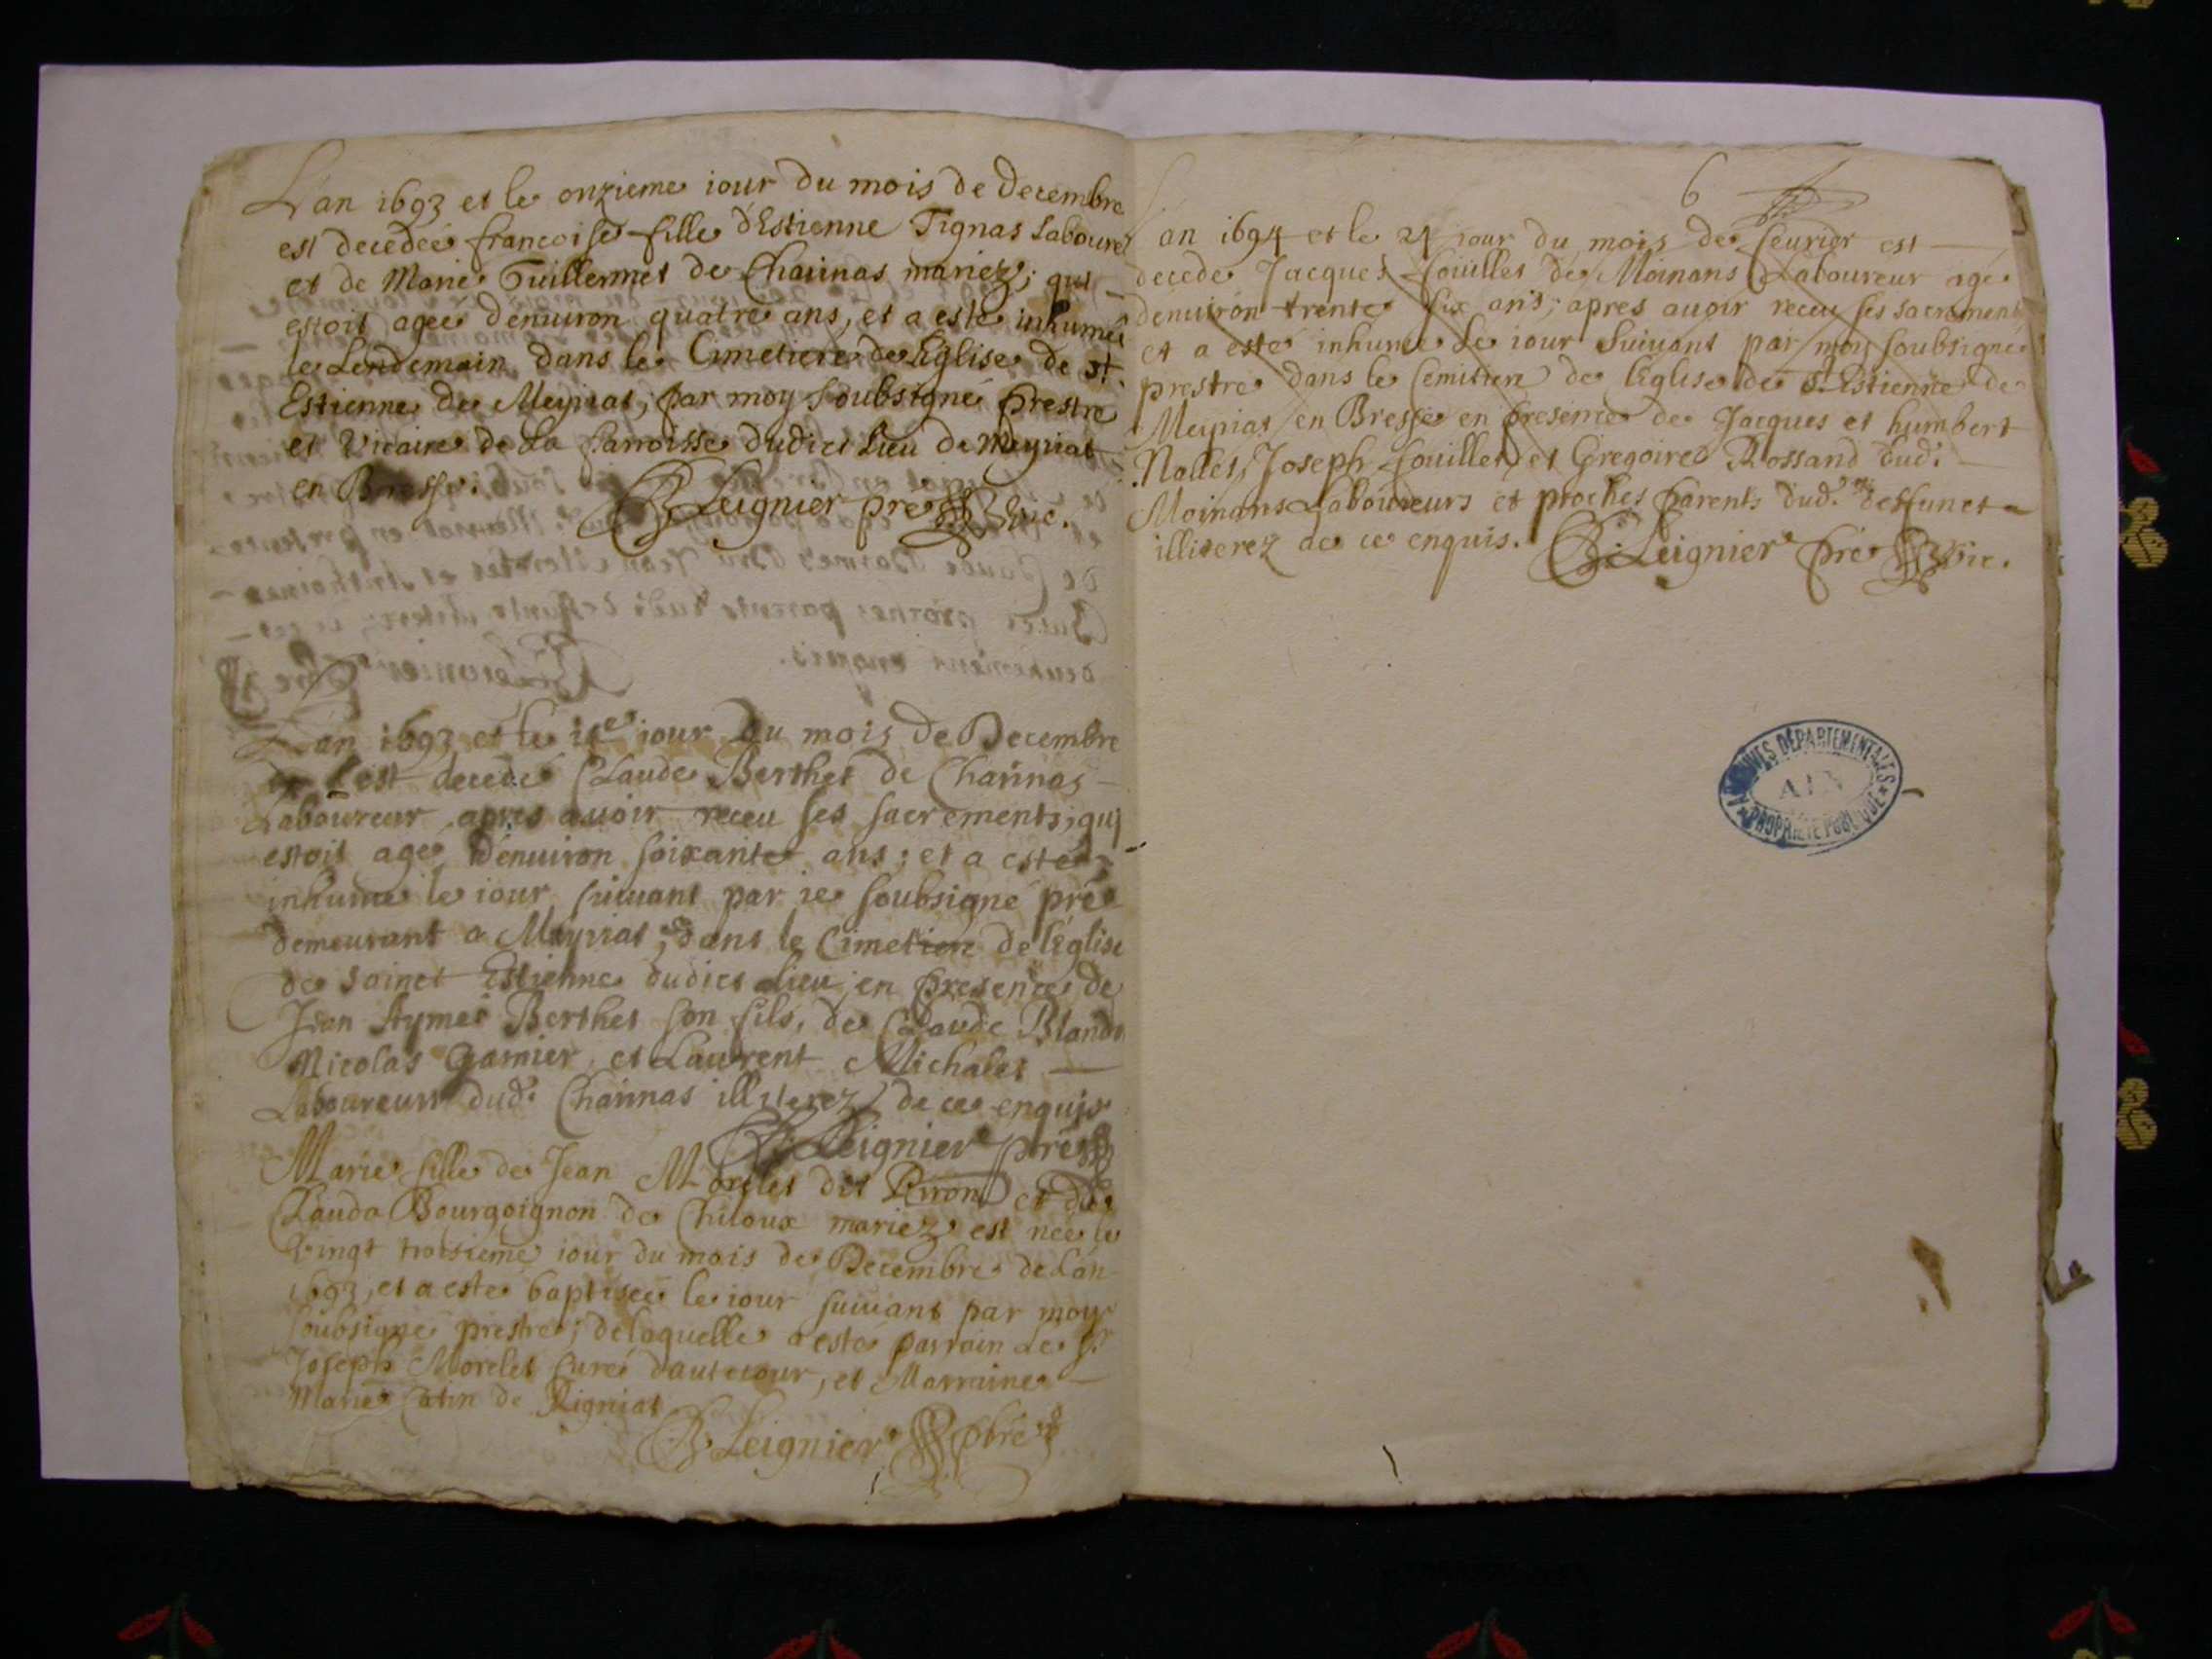 L'an 1693 et le onzieme iour du mois de Decembre
est decedeé francoise fille d'Estienne Tignas Laboure
et de Marie Guillermet de Charinas mariez; qui
estoit ageé denuiron quatre ans, et a esté inhumeé
le Lendemain dans le Cimetiere de Eglise de st
Estienne de Meyriat, par moy soubsigné prestre
et Vicaire de La parroisse dudict Lieu de Meyriat
en Bresse.
Leignier pre Vic.
L'an 1693 et le iour du mois de Decembre
est decedé Claude Berthet de Charinas
Laboureur apres auoir receu ses sacrements, qui
estoit agé denuiron soixante ans; et a esté
inhumé le iour suiuant par ie soubsigné pré
demeurant a Meyriat, dans le Cimetiere de l'Eglise
de sainct Estienne dudict lieu, en presence de
Jean Aymé Berthet son fils, de Claude Bland
Nicolas Garnier, et Laurent Michalet
Laboureurs dud. Charinas illiterez de ce enquis
Leignier pre
Marie fille de Jean Morelet dit Piron et de
Clauda Bourgoignon de Chiloux mariez est neé le
vingt troisieme iour du mois de Decembre de L'an
1693, et a esté baptiseé le iour suiuant par moy
soubsigné prestre; de laquelle a esté parrain Le Sr
Joseph Morelet Curé d'autecour, et Marraine
Marie Catin de Rigniat
Leignier pbre
6
L'an 1694 et le 21 iour du mois de feurier est
decedé Jacques fouillet de Moinans Laboureur agé
denuiron trente six ans; apres auoir receu ses sacrement
et a esté inhumé Le iour Suiuant par moy soubsigné
prestre dans le Cemitiere de l'Eglise de St Estienne de
Meyriat en Bresse en presence de Jacques et humbert
Nallet, Joseph fouillet, et Gregoire Rossand dud.
Moinans Laboureurs et proches parents dud. deffunct
illiterez de ce enquis. Leignier pré Vic.
ARCHIVES DÉPARTEMENTALES
AIN
PROPRIÉTÉ PUBLIQUE